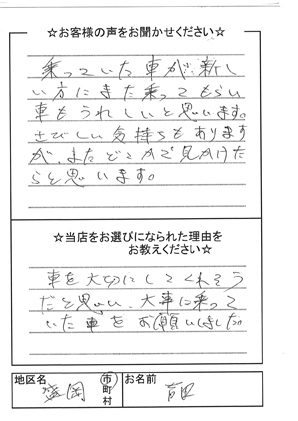 ☆お客様の声をお聞かせください☆
乗っていた車が、新し
い方にまた乗ってもらい
車もうれしいと思います。
さびしい気持ちもあります
が、またどこかで見かけた
らと思います。
☆当店をお選びになられた理由を
お教えください☆
車を大切にしてくれそう
だと思い、大事に乗って
いた車をお願いしました。
地区名
盛岡
市
町
村
お名前